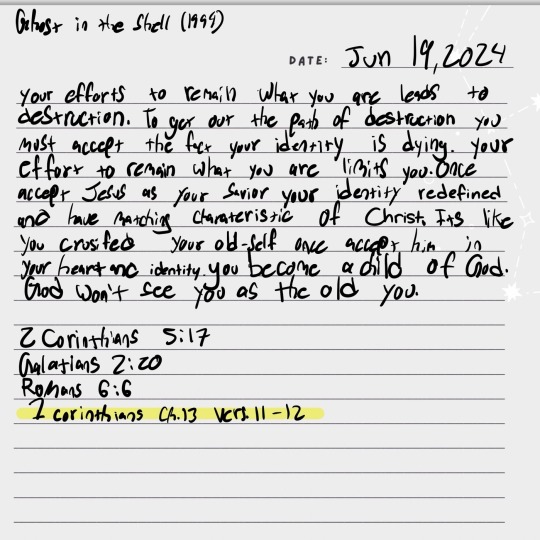 Ghost in the Shell (1995)
DATE: Jun 19, 2024
your efforts to remain what you are leads to
destruction. To get out the path of destruction you
must accept the fact your identity is dying. your
effort to remain what you are limits you. Once
accept Jesus as your Savior your identity redefined
and have matching charateristic of Christ. Its like
you crusifed your old-self once accept him in
your heart and identity. you become a child of God.
God won't see you as the old you.
2 Corinthians 5:17
Galatians 2:20
Romans 6:6
1 corinthians Ch.13 Vers. 11-12